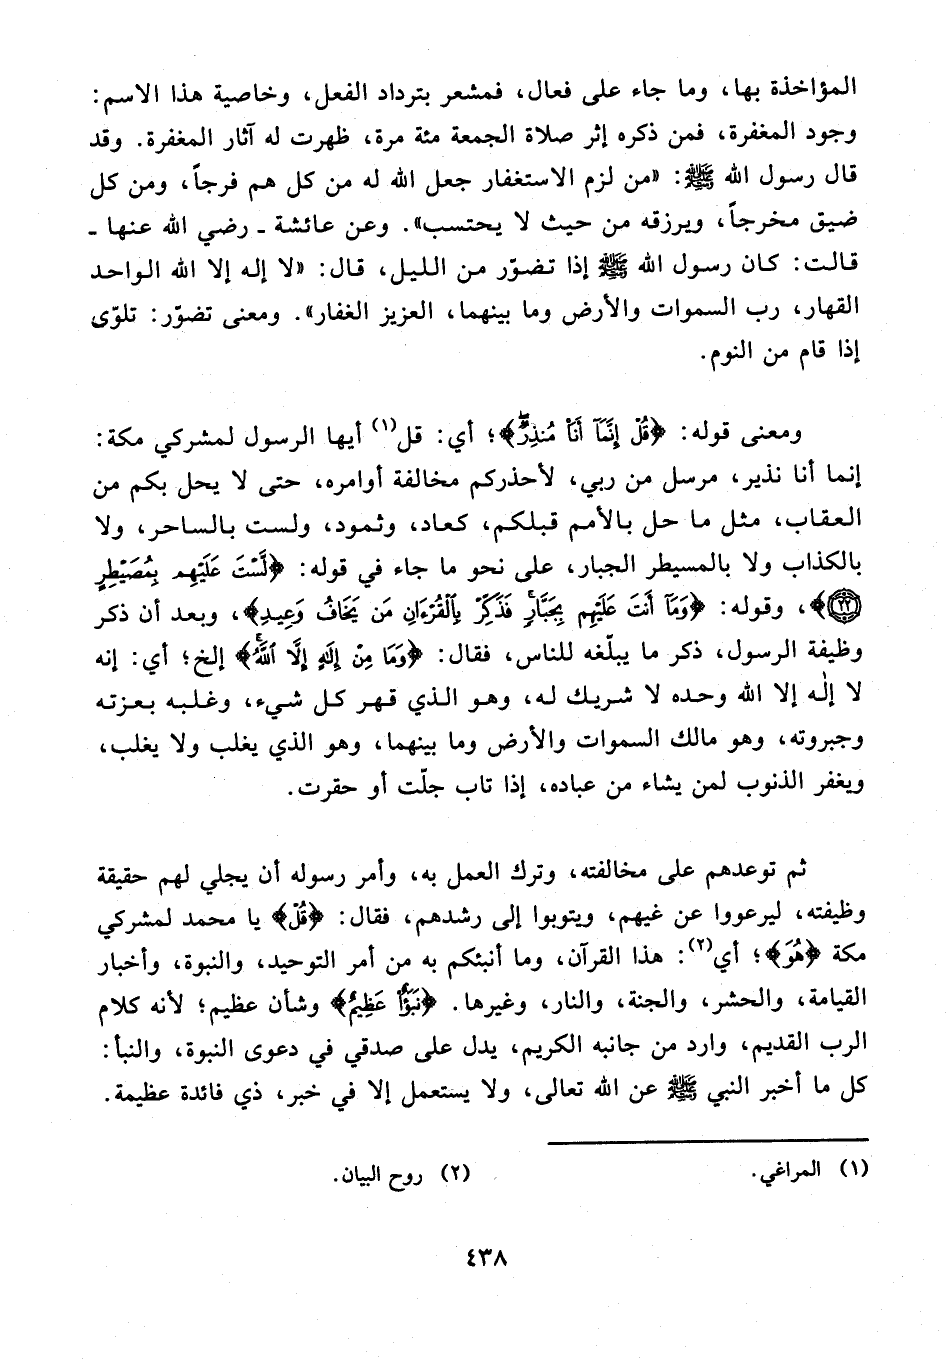 المؤاخذة بها، وما جاء على فعال، فمشعر بترداد الفعل، وخاصية هذا الاسم:
وجود المغفرة، فمن ذكره إثر صلاة الجمعة مئة مرة، ظهرت له آثار المغفرة. وقد
قال رسول الله ﷺ: «من لزم الاستغفار جعل الله له من كل هم فرجاً، ومن كل
ضيق مخرجاً، ويرزقه من حيث لا يحتسب». وعن عائشة ـ رضي الله عنها ـ
قالت: كان رسول الله ﷺ إذا تضوّر من الليل، قال: «لا إله إلا الله الواحد
القهار، رب السموات والأرض وما بينهما، العزيز الغفار». ومعنى تضوّر: تلوّى
إذا قام من النوم.
ومعنى قوله: ﴿قُلْ إِنَّمَآ أَنَا۠ مُنذِرٌۖ﴾؛ أي: قل(١) أيها الرسول لمشركي مكة:
إنما أنا نذير، مرسل من ربي، لأحذركم مخالفة أوامره، حتى لا يحل بكم من
العقاب، مثل ما حل بالأمم قبلكم، كعاد، وثمود، ولست بالساحر، ولا
بالكذاب ولا بالمسيطر الجبار، على نحو ما جاء في قوله: ﴿لَّسْتَ عَلَيْهِم بِمُصَيْطِرٍ
(٢٢)﴾، وقوله: ﴿وَمَآ أَنتَ عَلَيْهِم بِجَبَّارٍۖ فَذَكِّرْ بِٱلْقُرْءَانِ مَن يَخَافُ وَعِيدِ﴾، وبعد أن ذكر
وظيفة الرسول، ذكر ما يبلّغه للناس، فقال: ﴿وَمَا مِنْ إِلَٰهٍ إِلَّا ٱللَّهُ﴾ إلخ؛ أي: إنه
لا إلٰه إلا الله وحده لا شريك له، وهو الذي قهر كل شيء، وغلبه بعزته
وجبروته، وهو مالك السموات والأرض وما بينهما، وهو الذي يغلب ولا يغلب،
ويغفر الذنوب لمن يشاء من عباده، إذا تاب جلّت أو حقرت.
ثم توعدهم على مخالفته، وترك العمل به، وأمر رسوله أن يجلي لهم حقيقة
وظيفته، ليرعووا عن غيهم، ويتوبوا إلى رشدهم، فقال: ﴿قُلْ﴾ يا محمد لمشركي
مكة ﴿هُوَ﴾؛ أي(٢): هذا القرآن، وما أنبئكم به من أمر التوحيد، والنبوة، وأخبار
القيامة، والحشر، والجنة، والنار، وغيرها. ﴿نَبَؤٌا۟ عَظِيمٌ﴾ وشأن عظيم؛ لأنه كلام
الرب القديم، وارد من جانبه الكريم، يدل على صدقي في دعوى النبوة، والنبأ:
كل ما أخبر النبي ﷺ عن الله تعالى، ولا يستعمل إلا في خبر، ذي فائدة عظيمة.
(١) المراغي. (٢) روح البيان.
٤٣٨